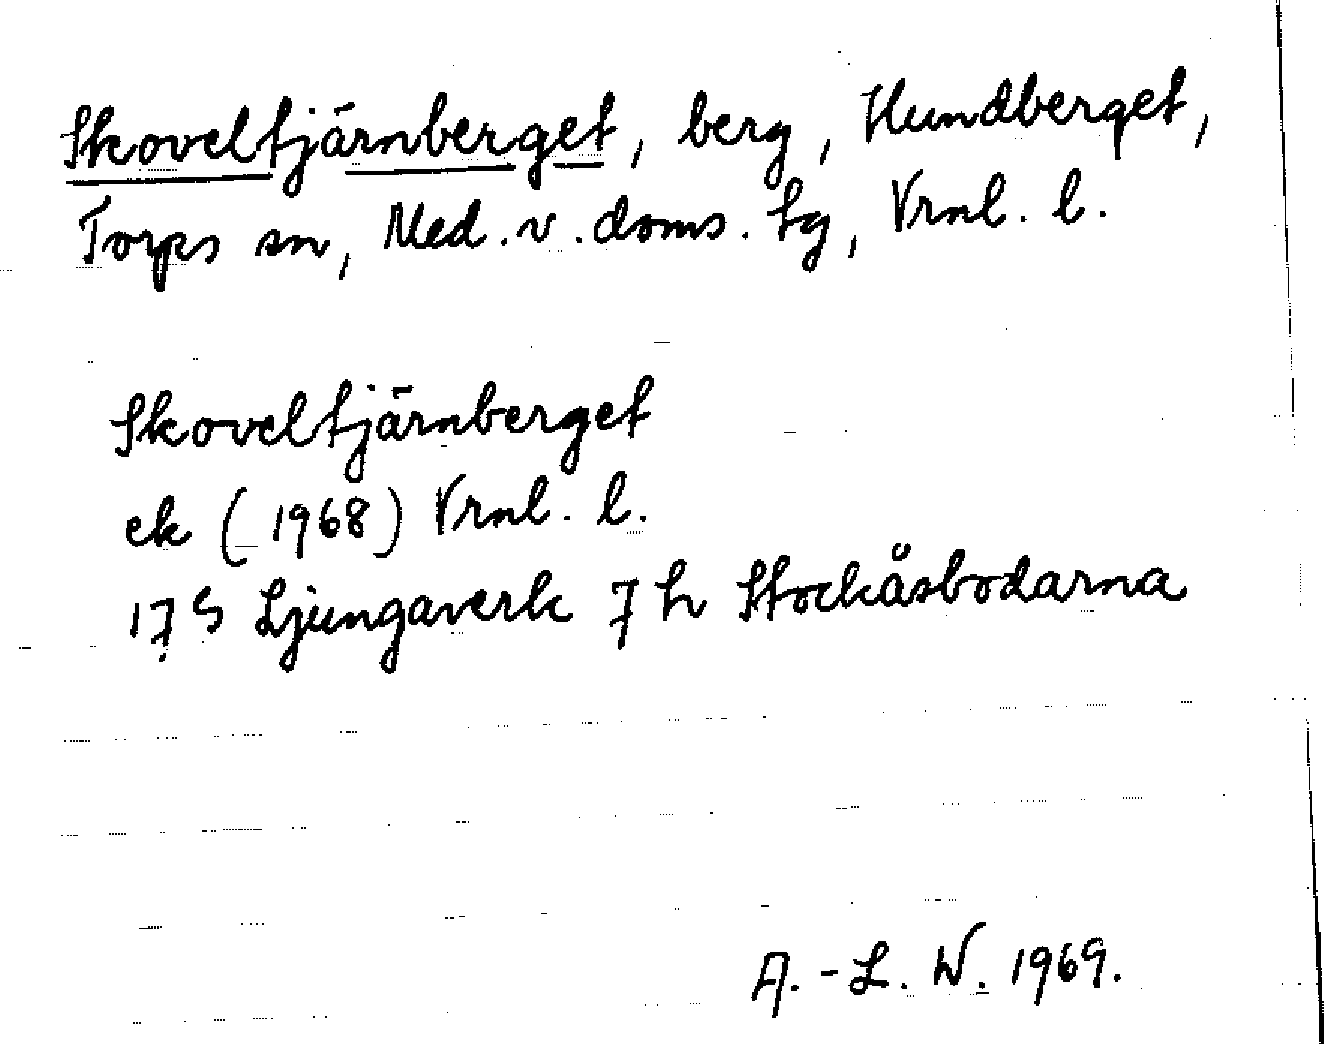 Skoveltjärnberget, berg, Hundberget,
Torps sn, Med. v. doms. tg, Vrnl. l.
Skoveltjärnberget
ek (1968) Vrnl. l.
17 S Ljungaverk 7 h Stockåsbodarna
A.-L. W. 1969.